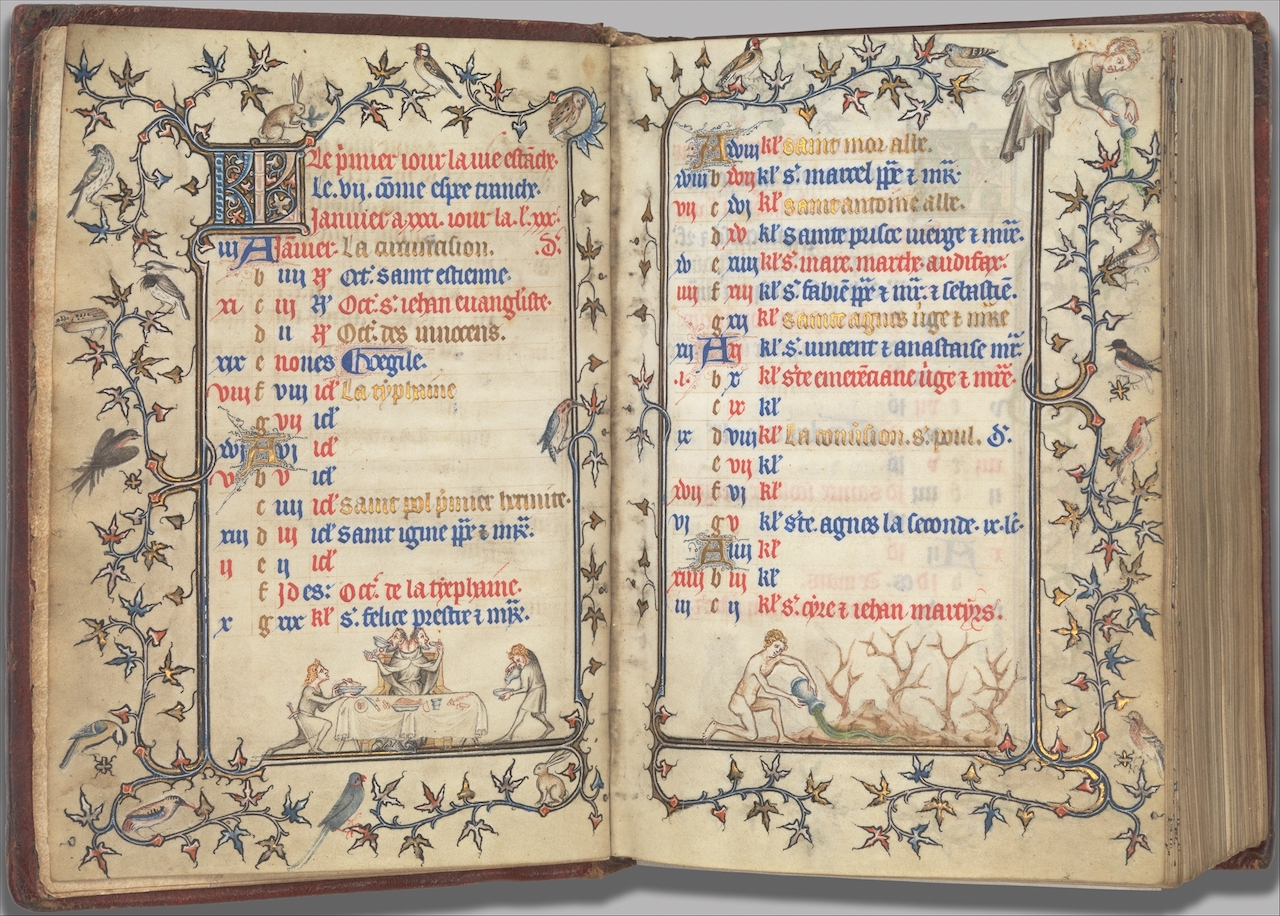 KL Le p̄mier iour la uie estāche.
Le .vij. cōme espee tranche.
Januier a .xxxi. iour la .l. xxx.
iij A Januier. La circuncision. D.
b iiij N̄ Oct. saint estienne.
xi c iij N̄ Oct. s. iehan euangliste.
d ij N̄ Oct. des innocens.
xix e nones
viij f viij id La typhaine
g vij id
xvj A vj id
v b v id
c iiij id saint pol p̄mier hermite.
xiij d iij id saint igine p̄p̄e ⁊ mr̄.
ij e ij id
f Ides: Oct. de la typhaine.
x g xix kl s. felice prestre ⁊ mr̄.
A xviij kl saint mor abbe.
xviij b xvij kl s. marcel p̄p̄e ⁊ mr̄.
vij c xvj kl saint antoine abbe.
d xv kl sainte prisce uierge ⁊ mr̄e.
xv e xiiij kl s. marc. marthe. audifax.
iiij f xiij kl s. fabiē p̄p̄e ⁊ mr̄. ⁊ sebastiē.
g xij kl sainte agnes ūge ⁊ mr̄e
xij A xj kl s. uincent ⁊ anastaise mr̄.
.i. b x kl ste emerēciane ūge ⁊ mr̄e.
c ix kl
ix d viij kl La conūsion. s. poul. D.
e vij kl
xvij f vj kl
vj g v kl ste. agnes la seconde. ix. lc̄.
A iiij kl
xiiij b iij kl
iij c ij kl s. cyre ⁊ iehan martyrs.